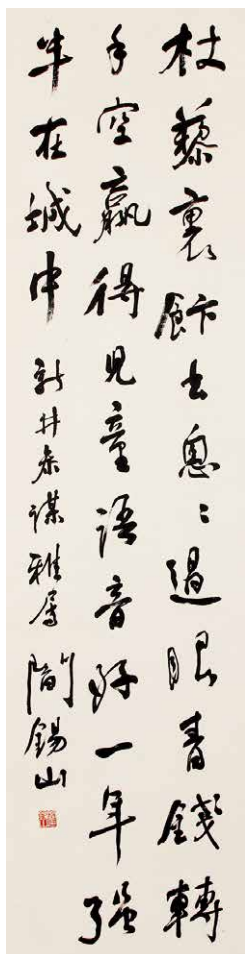 杖藜裹飰去悤〻過眼青錢轉
手空贏得兒童語音好一年強
半在城中 新井參謀雅屬 閻錫山